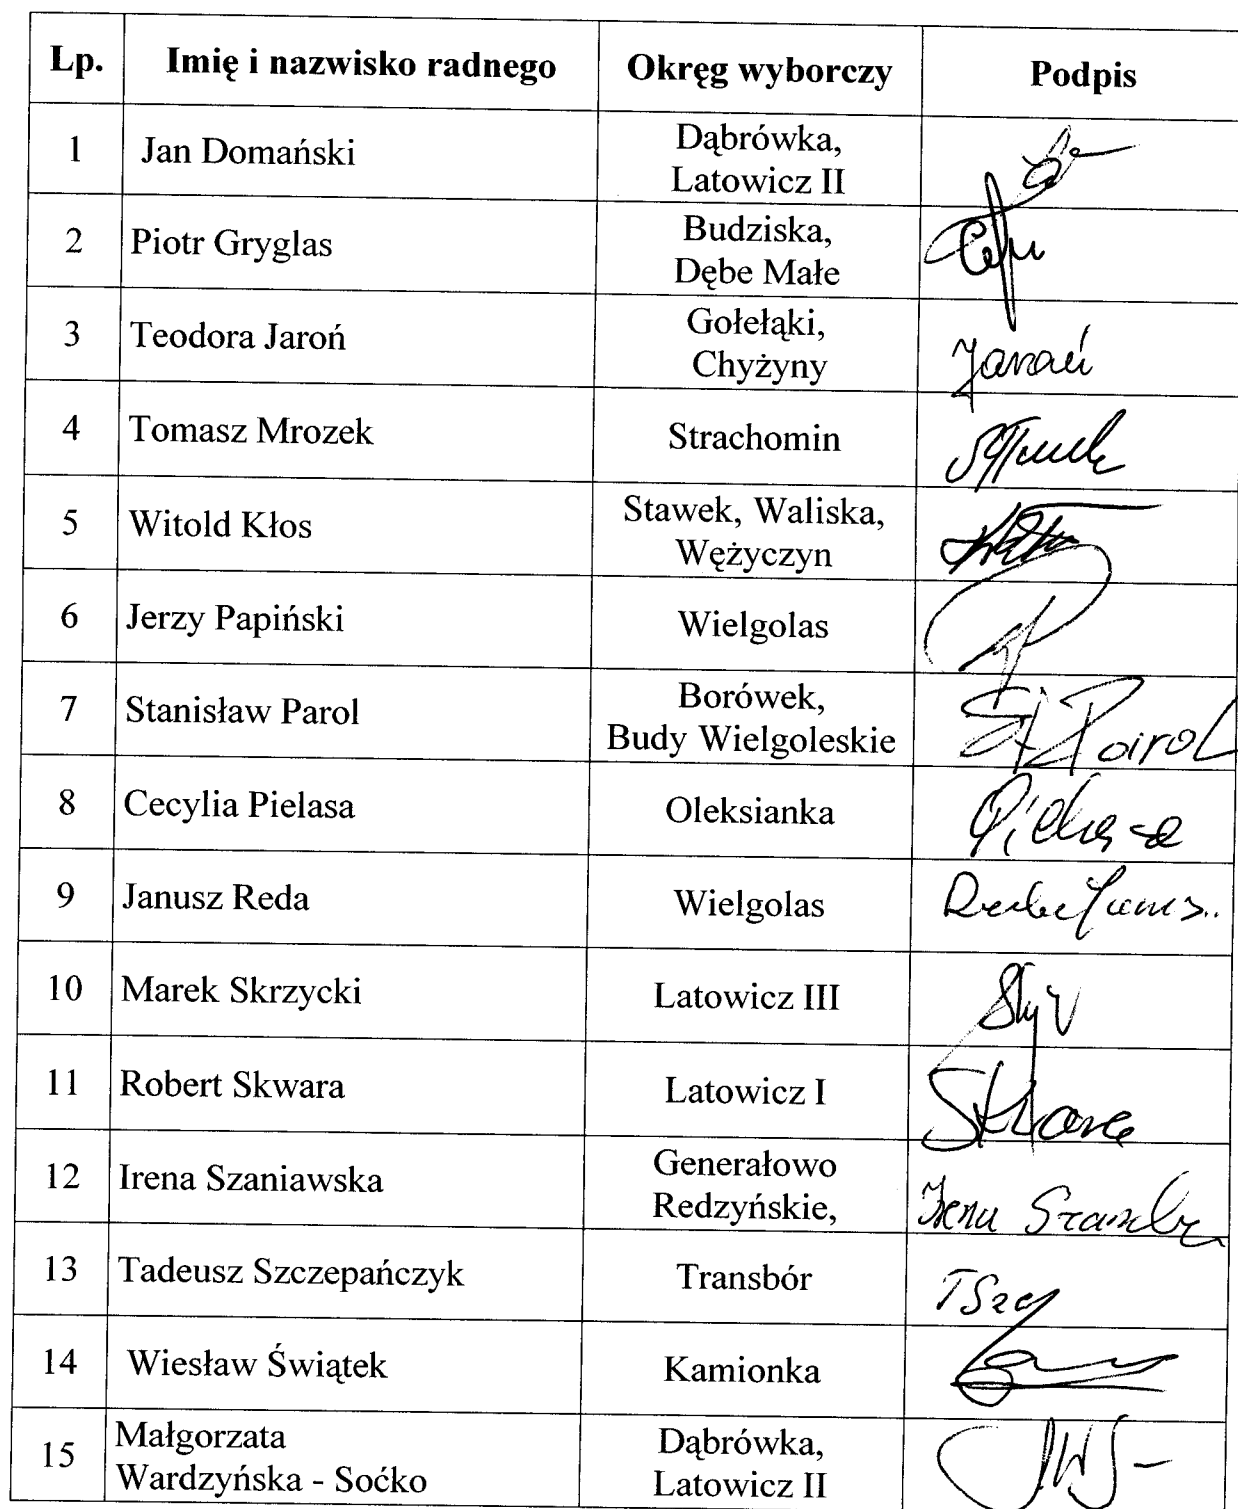 Lp. Imię i nazwisko radnego Okręg wyborczy Podpis
1 Jan Domański Dąbrówka,
Latowicz II
2 Piotr Gryglas Budziska,
Dębe Małe
3 Teodora Jaroń Gołełąki,
Chyżyny Jaroń
4 Tomasz Mrozek Strachomin
5 Witold Kłos Stawek, Waliska,
Wężyczyn
6 Jerzy Papiński Wielgolas
7 Stanisław Parol Borówek,
Budy Wielgoleskie St Parol
8 Cecylia Pielasa Oleksianka Pielasa
9 Janusz Reda Wielgolas
10 Marek Skrzycki Latowicz III
11 Robert Skwara Latowicz I Skwara
12 Irena Szaniawska Generałowo
Redzyńskie,
13 Tadeusz Szczepańczyk Transbór TSzcz
14 Wiesław Świątek Kamionka
15 Małgorzata
Wardzyńska - Soćko Dąbrówka,
Latowicz II